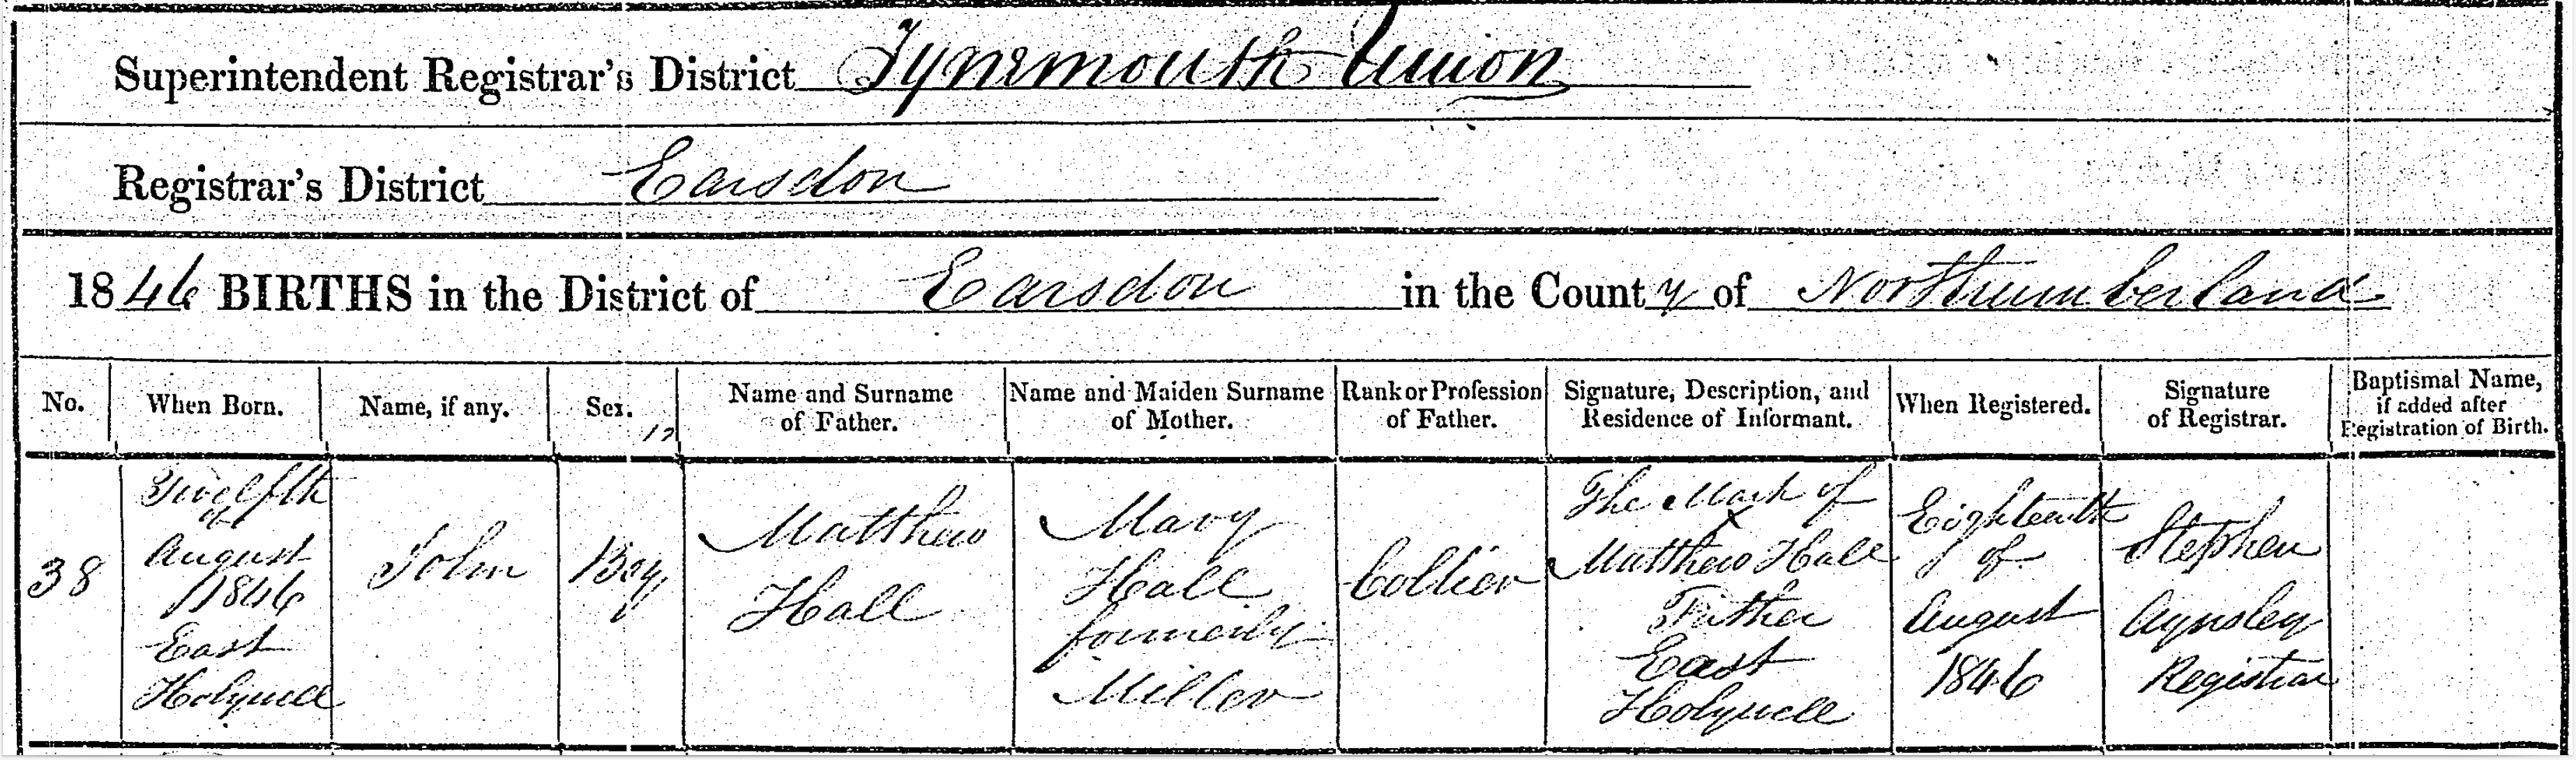 Superintendent Registrar's District Tynemouth Union
Registrar's District Earsdon
1846 BIRTHS in the District of Earsdon in the County of Northumberland
No. When Born. Name, if any. Sex. Name and Surname of Father. Name and Maiden Surname of Mother. Rank or Profession of Father. Signature, Description, and Residence of Informant. When Registered. Signature of Registrar. Baptismal Name, if added after Registration of Birth.
38
Twelfth
of
August
1846
East
Holywell
John
Boy
Matthew
Hall
Mary
Hall
formerly
Miller
Collier
The Mark of
X
Matthew Hall
Father
East
Holywell
Eighteenth
of
August
1846
Stephen
Aynsley
Registrar